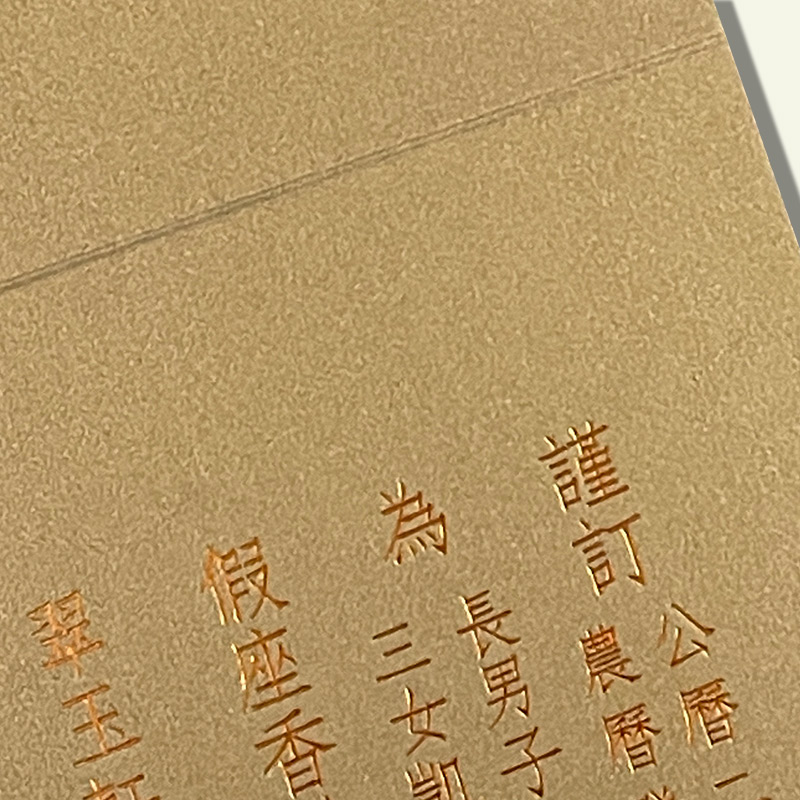 謹訂
公曆
農曆
為
長男子
三女凱
假座香
翠玉軒